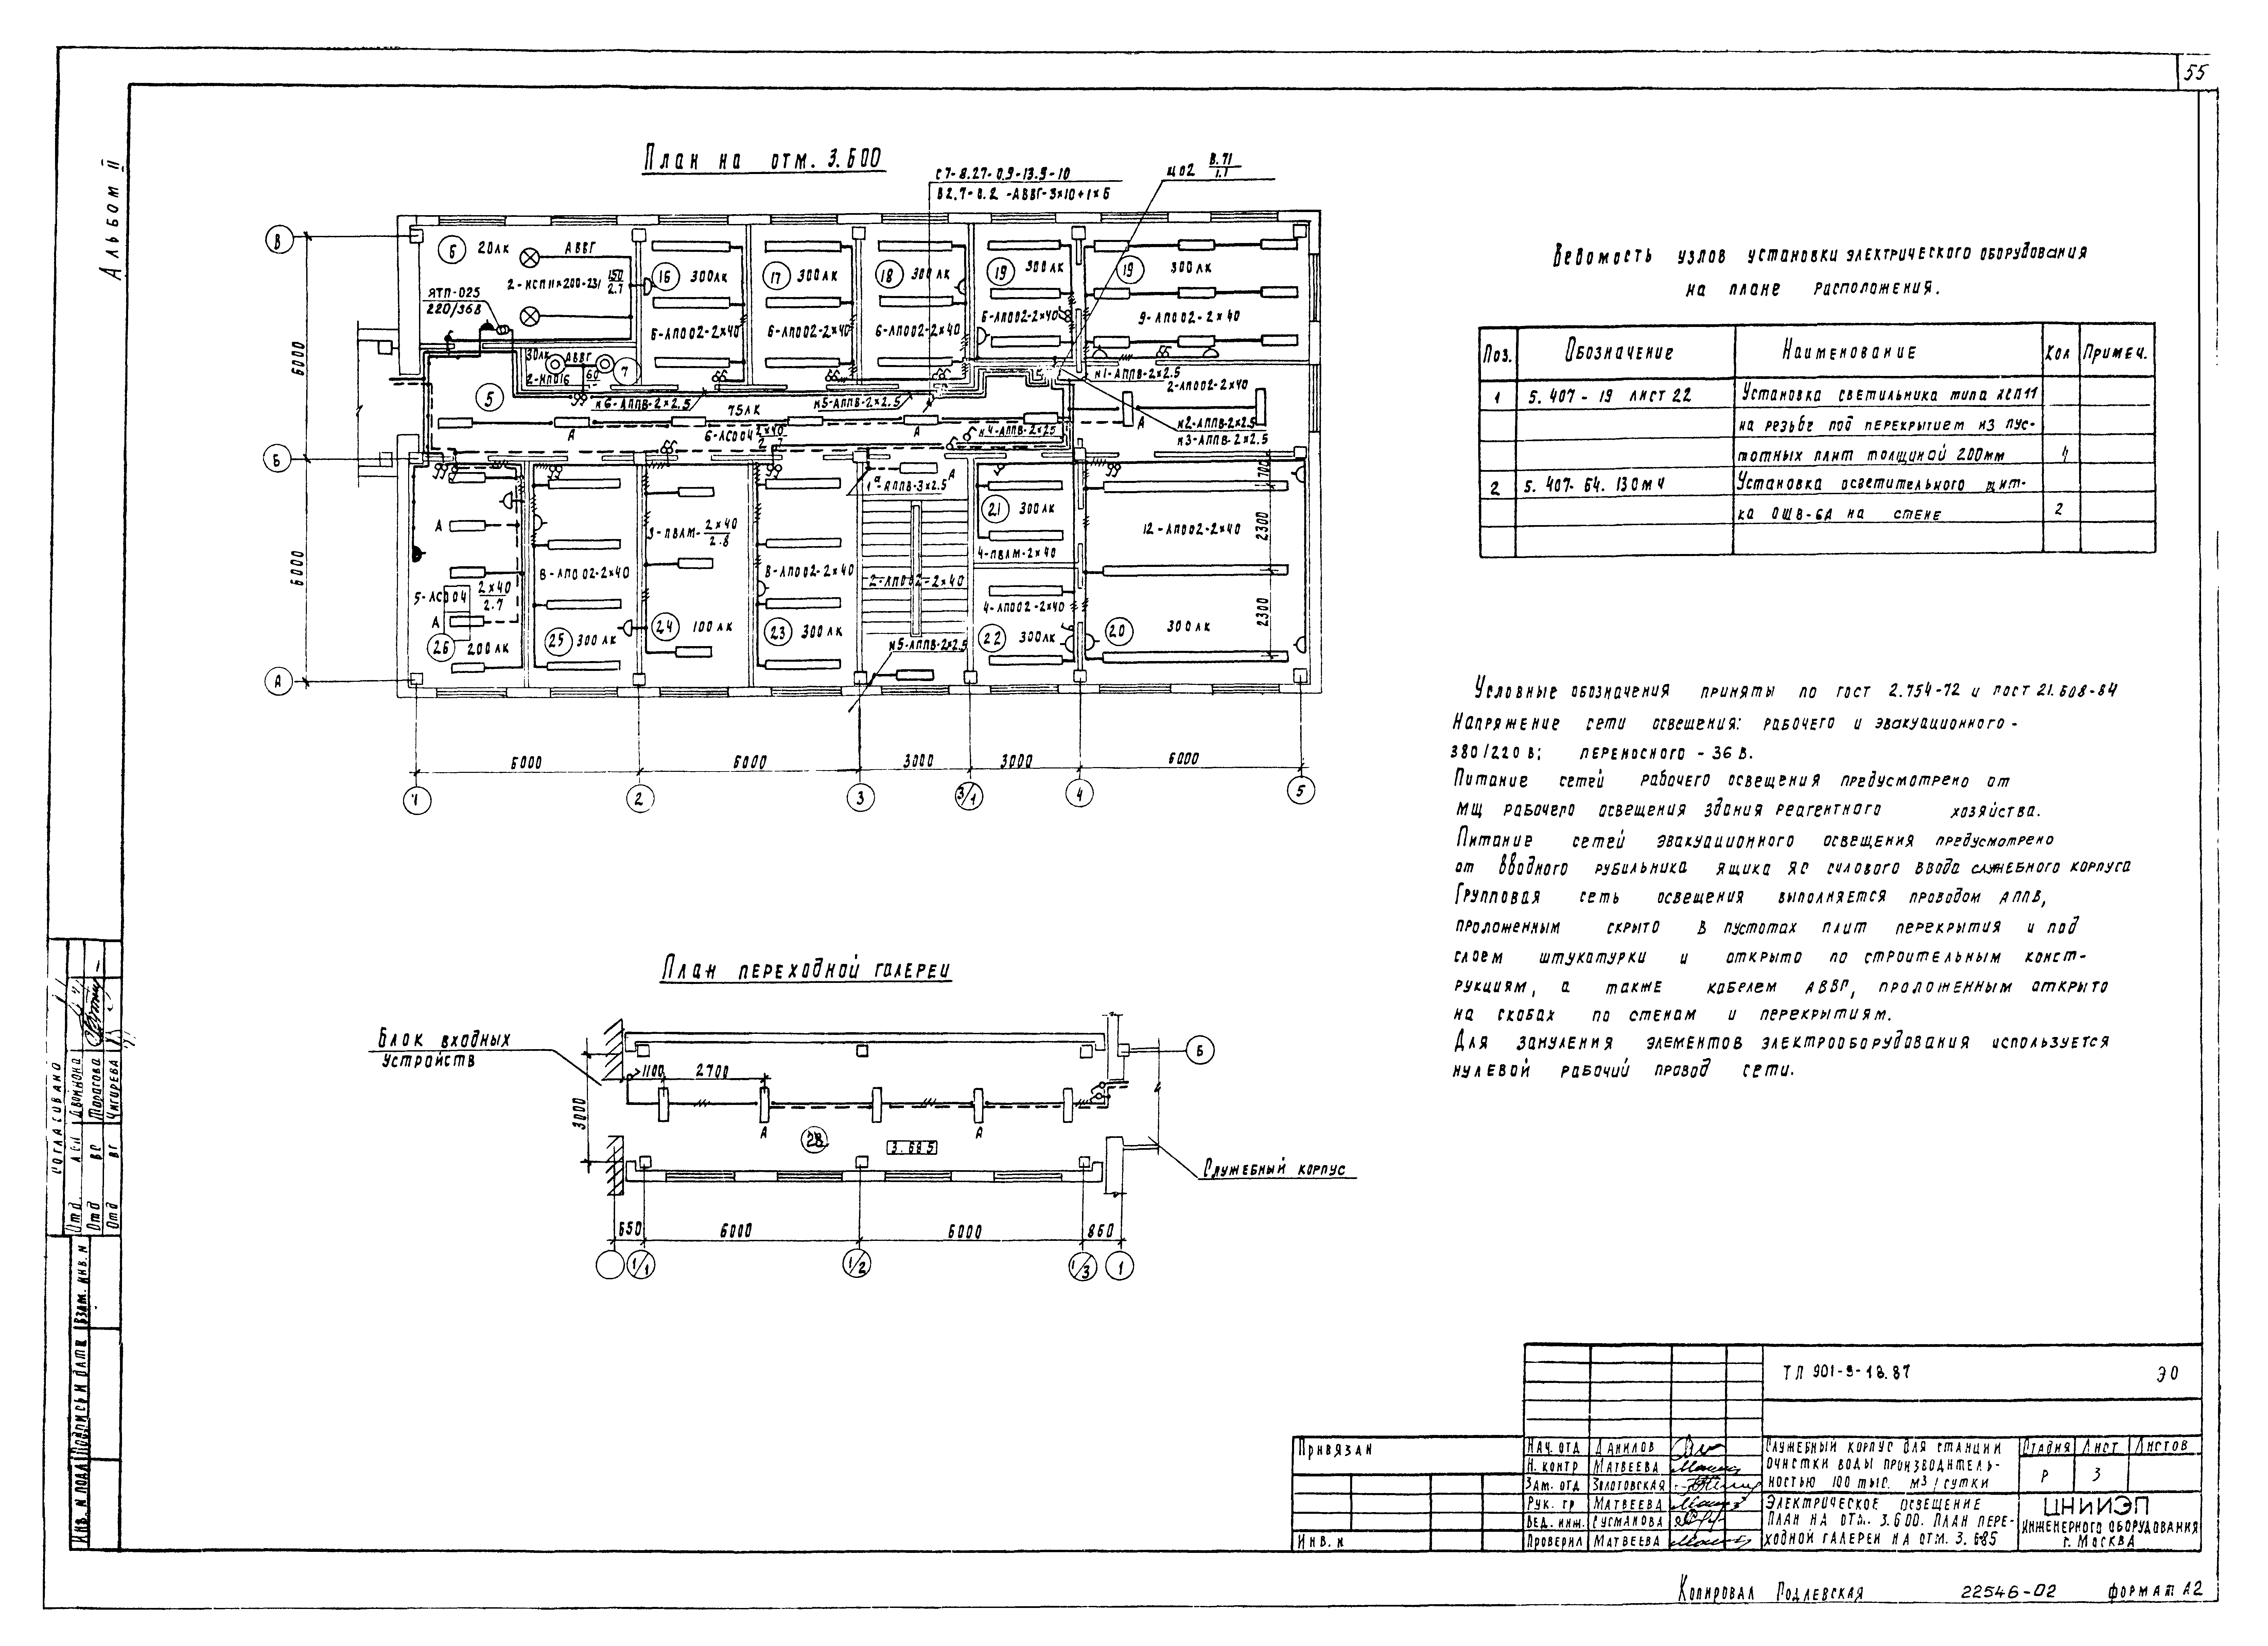 55
Альбом II
План на отм. 3.600
С7-8.27-0.9-13.9-10
В2.7-0.2 -АВВГ-3×10+1×6
ЩО2 В.71/1.1
В
Б
А
6000
6000
6 20ЛК АВВГ
150/2.7
ЯТП-025
220/36В
30ЛК АВВГ
60
7
5
75ЛК
6-ЛСО04 2×40
16 300ЛК
6-ЛПО02-2×40
17 300ЛК
6-ЛПО02-2×40
18 300ЛК
6-ЛПО02-2×40
19 300ЛК
6-ЛПО02-2×40
19 300ЛК
9-ЛПО02-2×40
N1-АППВ-2×2.5
2-ЛПО02-2×40
N6-АППВ-2×2.5
N5-АППВ-2×2.5
N4-АППВ-2×2.5
N2-АППВ-2×2.5
N3-АППВ-2×2.5
А
А
А
А
1а-АППВ-3×2.5
А
А
5-ЛСО04 2×40/2.7
26 200ЛК
8-ЛПО02-2×40
25 300ЛК
3-ПВЛМ-2×40/2.8
24 100ЛК
8-ЛПО02-2×40
23 300ЛК
2-ЛПО02-2×40
N5-АППВ-2×2.5
21 300ЛК
4-ПВЛМ-2×40
4-ЛПО02-2×40
22 300ЛК
12-ЛПО02-2×40
20 300ЛК
700
2300
2300
6000 6000 3000 3000 6000
1 2 3 3/1 4 5
Ведомость узлов установки электрического оборудования
на плане расположения.
Поз. Обозначение Наименование Кол Примеч.
1 5.407-19 лист 22 Установка светильника типа НСП11
на резьбе под перекрытием из пус-
тотных плит толщиной 200мм 4
2 5.407-64.130МЧ Установка осветительного щит-
ка ОЩВ-6А на стене 2
Условные обозначения приняты по ГОСТ 2.754-72 и ГОСТ 21.608-84
Напряжение сети освещения: рабочего и эвакуационного-
380/220 В; переносного - 36 В.
Питание сетей рабочего освещения предусмотрено от
МЩ рабочего освещения здания реагентного хозяйства.
Питание сетей эвакуационного освещения предусмотрено
от вводного рубильника ящика ЯС силового ввода служебного корпуса
Групповая сеть освещения выполняется проводом АППВ,
проложенным скрыто в пустотах плит перекрытия и под
слоем штукатурки и открыто по строительным конст-
рукциям, а также кабелем АВВГ, проложенным открыто
на скобах по стенам и перекрытиям.
Для зануления элементов электрооборудования используется
нулевой рабочий провод сети.
План переходной галереи
Блок входных
устройств
1100 2700
3000
Б
А А
28 3.685
Служебный корпус
650 6000 6000 860
1/1 1/2 1/3 1
Согласовано
Отд
Отд ВС Тарасова
Отд ВГ Чигирева
Инв. N подл Подпись и дата Взам. инв. N
Привязан
Инв. N
ТП 901-3-18.87 ЭО
Нач. отд Данилов
Н. контр Матвеева
Зам. отд Золотовская
Рук. гр Матвеева
Вед. инж. Сусманова
Проверил Матвеева
Служебный корпус для станции
очистки воды производитель-
ностью 100 тыс. м3/сутки
Стадия Лист Листов
Р 3
Электрическое освещение
План на отм. 3.600. План пере-
ходной галереи на отм. 3.685
ЦНИИЭП
инженерного оборудования
г. Москва
Копировал Подлевская 22546-02 формат А2